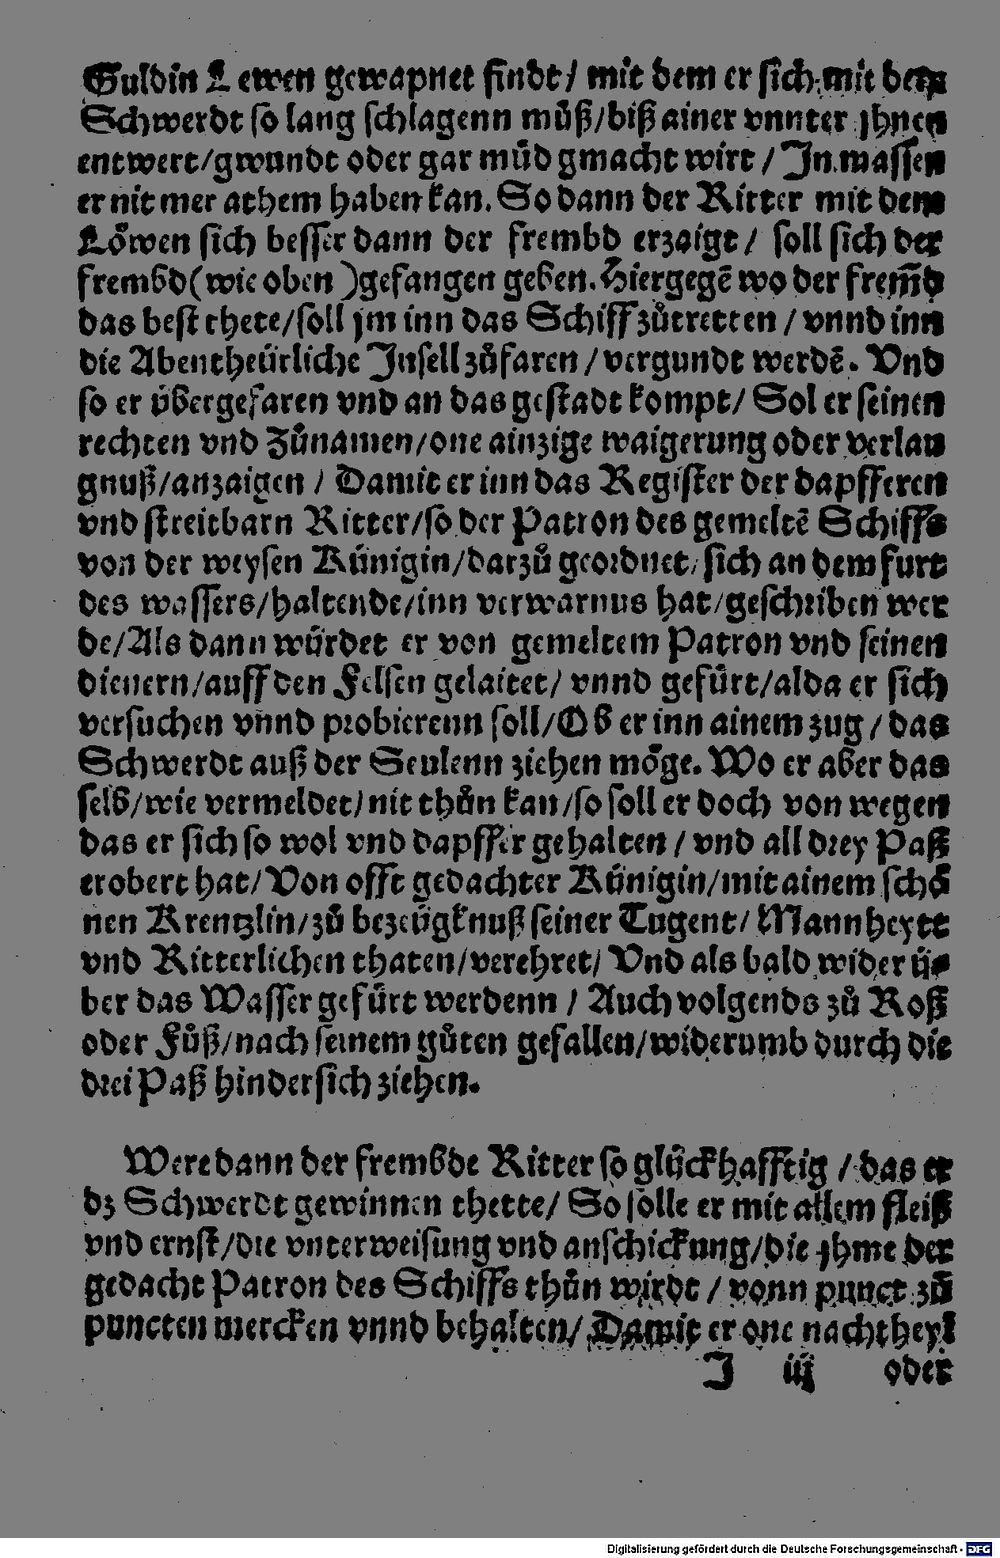 Guldin Lewen gewapnet findt / mit dem er sich mit dem
Schwerdt so lang schlagenn muͦß / biß ainer vnnter jhnen
entwert / gwundt oder gar muͤd gmacht wirt / In massen
er nit mer athem haben kan. So dann der Ritter mit dem
Loͤwen sich besser dann der frembd erzaigt / soll sich der
frembd (wie oben) gefangen geben. Hiergegẽ wo der frem̃d
das best thete / soll jm inn das Schiff zuͦtretten / vnnd inn
die Abentheuͤrliche Insell zuͦfaren / vergundt werdẽ. Vnd
so er uͤbergefaren vnd an das gestadt kompt / Sol er seinen
rechten vnd Zuͦnamen / one ainzige waigerung oder verlau
gnuß / anzaigen / Damit er inn das Register der dapfferen
vnd streitbarn Ritter / so der Patron des gemeltẽ Schiffs
von der weysen Kuͤnigin / darzuͦ geordnet / sich an dem furt
des wassers / haltende / inn verwarnus hat / geschriben wer
de / Als dann wuͤrdet er von gemeltem Patron vnd seinen
dienern / auff den Felsen gelaitet / vnnd gefuͤrt / alda er sich
versuchen vnnd probierenn soll / Ob er inn ainem zug / das
Schwerdt auß der Seulenn ziehen moͤge. Wo er aber das
selb / wie vermeldet / nit thuͦn kan / so soll er doch von wegen
das er sich so wol vnd dapffer gehalten / vnd all drey Paß
erobert hat / Von offt gedachter Kuͤnigin / mit ainem schoͤ
nen Krentzlin / zuͦ bezeuͤgknuß seiner Tugent / Mannheytt
vnd Ritterlichen thaten / verehret / Vnd als bald wider uͤ⸗
ber das Wasser gefuͤrt werdenn / Auch volgends zuͦ Roß
oder Fuͦß / nach seinem guͦten gefallen / widerumb durch die
drei Paß hindersich ziehen.
Were dann der frembde Ritter so gluͤckhafftig / das er
dz Schwerdt gewinnen thette / So solle er mit allem fleiß
vnd ernst / die vnterweisung vnd anschickung / die jhme der
gedacht Patron des Schiffs thuͦn wirdt / vonn punct zuͦ
puncten mercken vnnd behalten / Damit er one nachtheyl
I iij oder
Digitalisierung gefördert durch die Deutsche Forschungsgemeinschaft - DFG